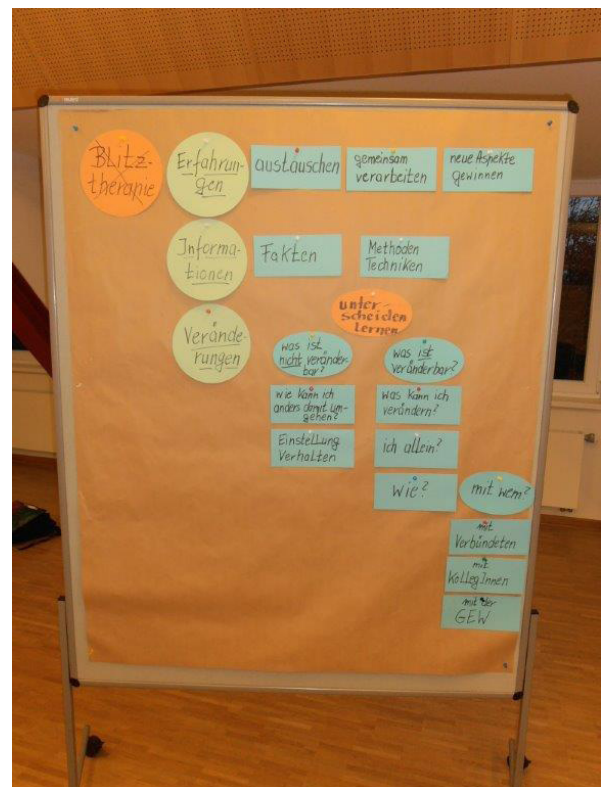 Blitz-
therapie
Erfahrun-
gen
austauschen
gemeinsam
verarbeiten
neue Aspekte
gewinnen
Informa-
tionen
Fakten
Methoden
Techniken
unter-
scheiden
lernen
Verände-
rungen
was ist
nicht veränder-
bar?
was ist
veränderbar?
wie kann ich
anders damit um-
gehen?
was kann ich
verändern?
Einstellung
Verhalten
ich allein?
wie?
mit wem?
mit
Verbündeten
mit
KollegInnen
mit der
GEW